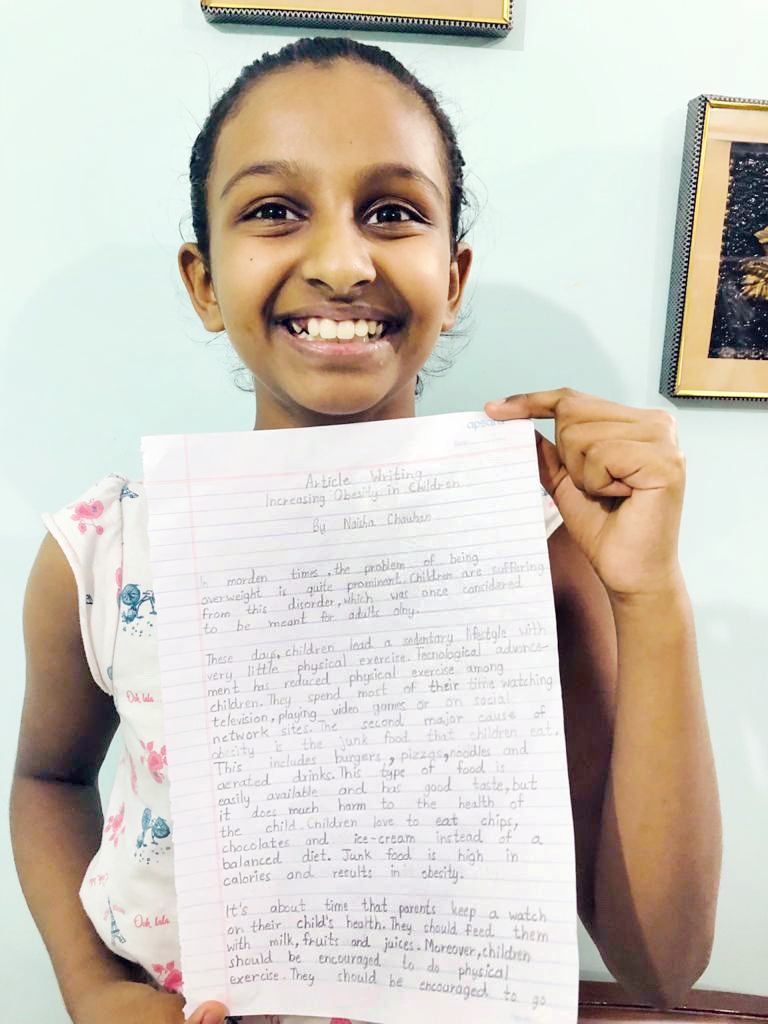 apsara
Article Writing
Increasing Obesity in Children
By Naisha Chauhan
In morden times, the problem of being
overweight is quite prominent. Children are suffering
from this disorder, which was once considered
to be meant for adults olny.
These days, children lead a sedentary lifestyle with
very little physical exercise. Tecnological advance-
ment has reduced physical exercise among
children. They spend most of their time watching
television, playing video games or on social
network sites. The second major cause of
obesity is the junk food that children eat.
This includes burgers, pizzas, noodles and
aerated drinks. This type of food is
easily available and has good taste, but
it does much harm to the health of
the child. Children love to eat chips,
chocolates and ice-cream instead of a
balanced diet. Junk food is high in
calories and results in obesity.
It's about time that parents keep a watch
on their child's health. They should feed them
with milk, fruits and juices. Moreover, children
should be encouraged to do physical
exercise. They should be encouraged to go
Ooh lala
Ooh lala